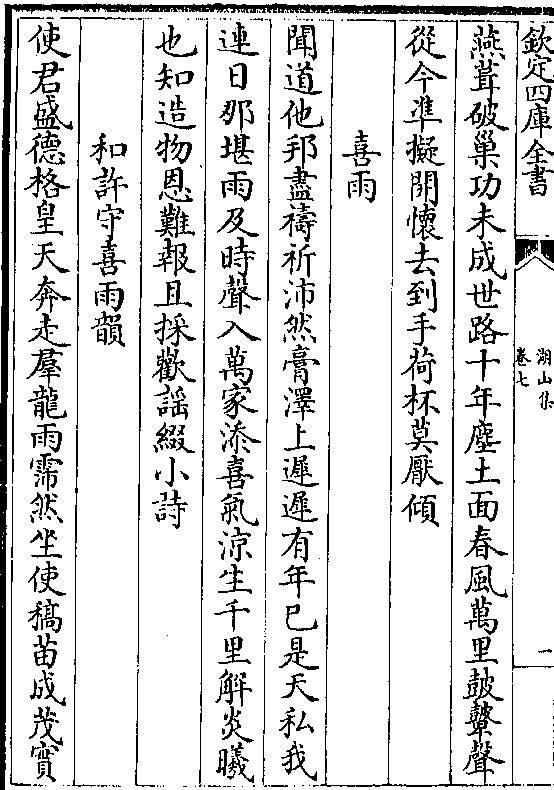 欽定四庫全書
湖山集
卷七
一
燕葺破巢功未成世路十年塵土面春風萬里鼓鼙聲
從今準擬開懷去到手荷杯莫厭傾
喜雨
聞道他邦盡禱祈沛然膏澤上遲遲有年已是天私我
連日那堪雨及時聲入萬家添喜氣涼生千里解炎曦
也知造物恩難報且採歡謡綴小詩
和許守喜雨韻
使君盛德格皇天奔走羣龍雨霈然坐使稿苗成茂實